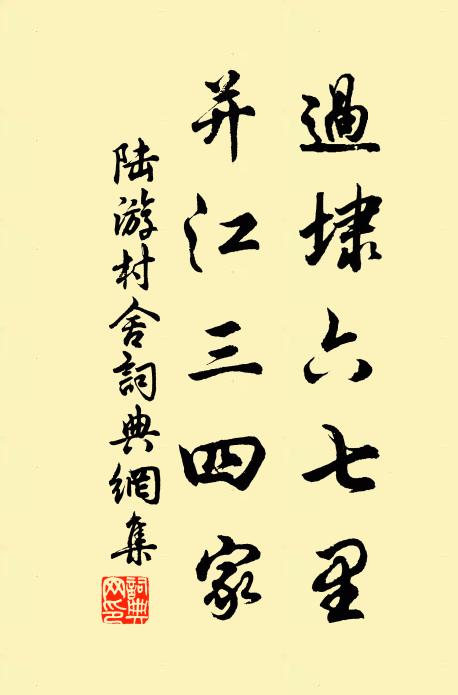 過埭六七里
并江三四家
陸游村舍詞典網集
詞典網印